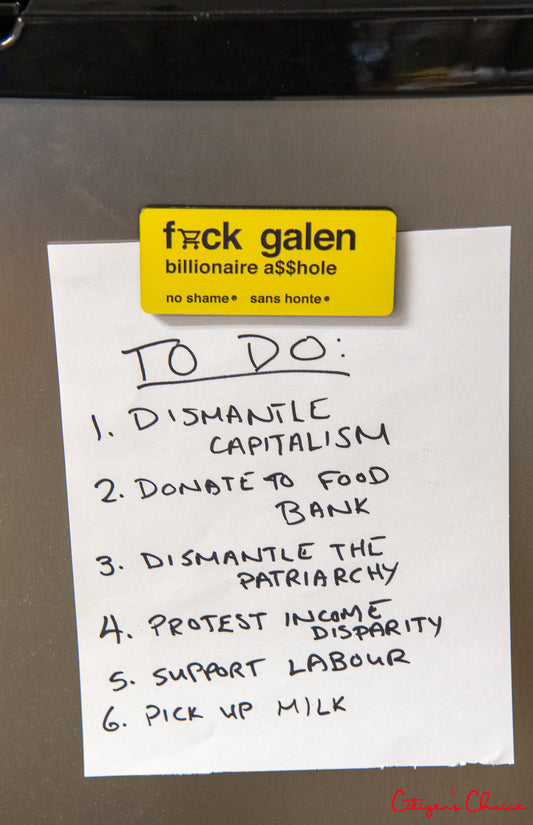 f ck galen
billionaire a$$hole
no shame sans honte
TO DO:
1. DISMANTLE
CAPITALISM
2. DONATE TO FOOD
BANK
3. DISMANTLE THE
PATRIARCHY
4. PROTEST INCOME
DISPARITY
5. SUPPORT LABOUR
6. PICK UP MILK
Citizen's Choice